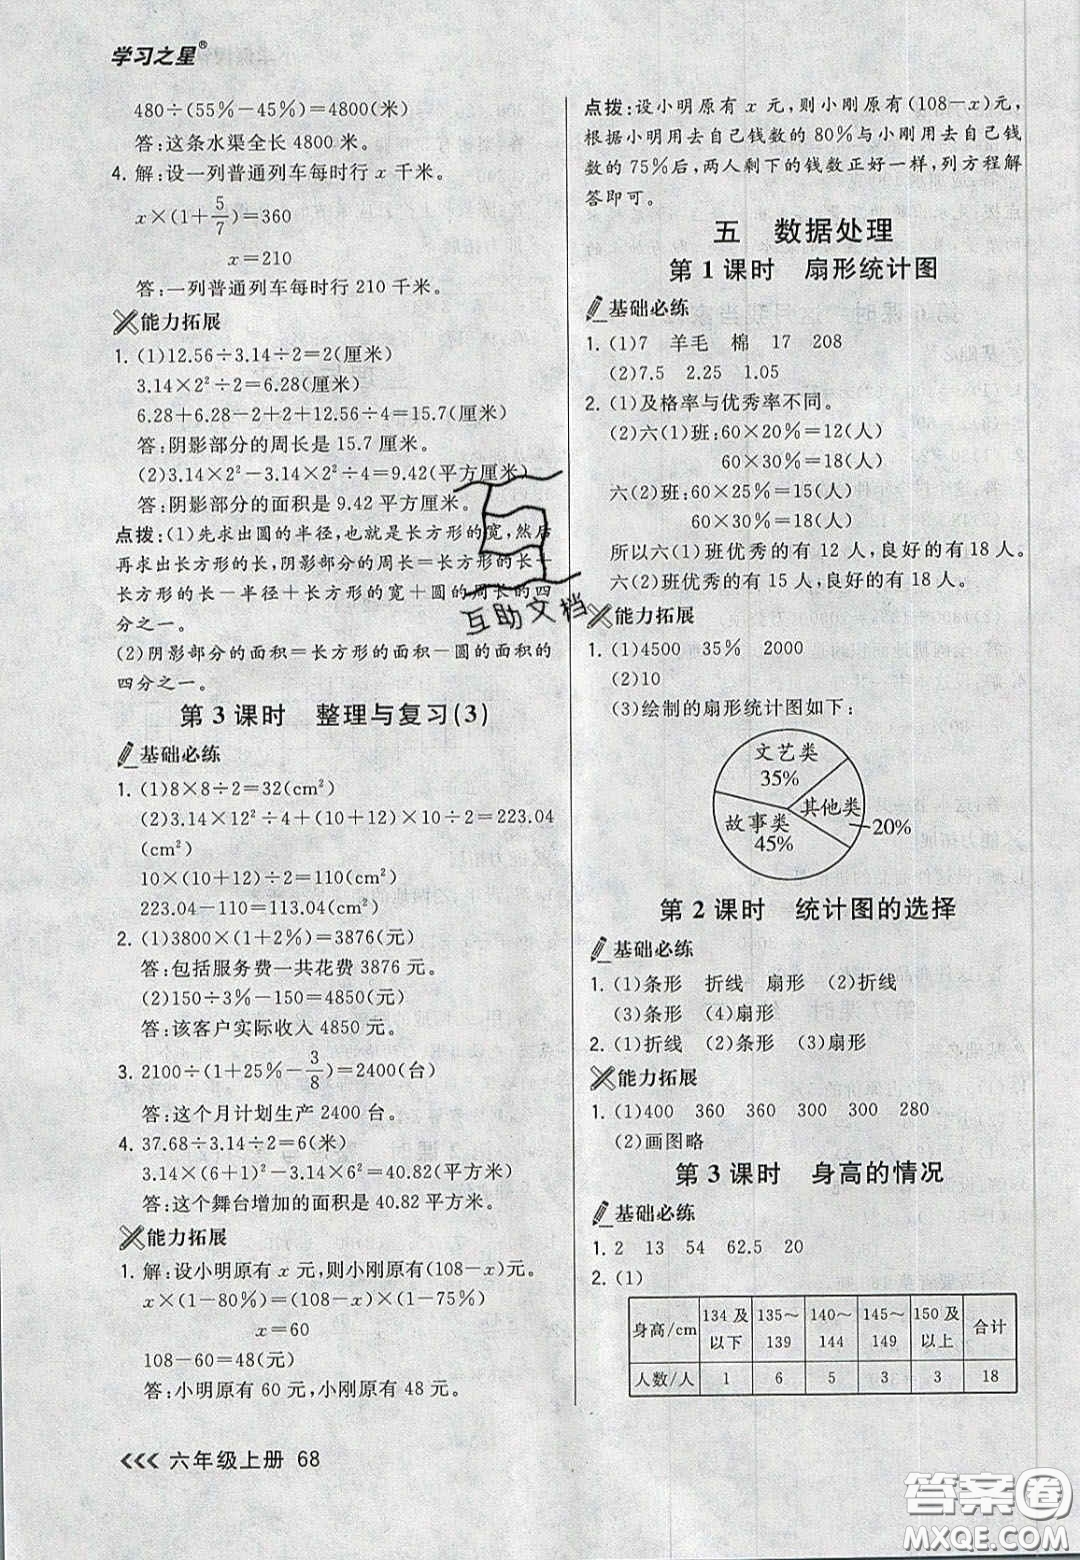 学习之星®
480÷(55%－45%)＝4800(米)
答:这条水渠全长 4800 米。
4. 解:设一列普通列车每时行 x 千米。
x×(1＋5/7)＝360
x＝210
答:一列普通列车每时行 210 千米。
能力拓展
1. (1)12.56÷3.14÷2＝2(厘米)
3.14×2²÷2＝6.28(厘米)
6.28＋6.28－2＋2＋12.56÷4＝15.7(厘米)
答:阴影部分的周长是 15.7 厘米。
(2)3.14×2²－3.14×2²÷4＝9.42(平方厘米)
答:阴影部分的面积是 9.42 平方厘米。
点拨:(1)先求出圆的半径,也就是长方形的宽,然后
再求出长方形的长,阴影部分的周长＝长方形的长＋
长方形的长－半径＋长方形的宽＋圆的周长的四
分之一。
(2)阴影部分的面积＝长方形的面积－圆的面积的
四分之一。
第 3 课时　整理与复习(3)
基础必练
1. (1)8×8÷2＝32(cm²)
(2)3.14×12²÷4＋(10＋12)×10÷2＝223.04
(cm²)
10×(10＋12)÷2＝110(cm²)
223.04－110＝113.04(cm²)
2. (1)3800×(1＋2%)＝3876(元)
答:包括服务费一共花费 3876 元。
(2)150÷3%－150＝4850(元)
答:该客户实际收入 4850 元。
3. 2100÷(1＋25%－3/8)＝2400(台)
答:这个月计划生产 2400 台。
4. 37.68÷3.14÷2＝6(米)
3.14×(6＋1)²－3.14×6²＝40.82(平方米)
答:这个舞台增加的面积是 40.82 平方米。
能力拓展
1. 解:设小明原有 x 元,则小刚原有(108－x)元。
x×(1－80%)＝(108－x)×(1－75%)
x＝60
108－60＝48(元)
答:小明原有 60 元,小刚原有 48 元。
六年级上册 68
点拨:设小明原有 x 元,则小刚原有(108－x)元,
根据小明用去自己钱数的 80%与小刚用去自己钱
数的 75%后,两人剩下的钱数正好一样,列方程解
答即可。
五　数据处理
第 1 课时　扇形统计图
基础必练
1. (1)7　羊毛　棉　17　208
(2)7.5　2.25　1.05
2. (1)及格率与优秀率不同。
(2)六(1)班:60×20%＝12(人)
60×30%＝18(人)
六(2)班:60×25%＝15(人)
60×30%＝18(人)
所以六(1)班优秀的有 12 人,良好的有 18 人。
六(2)班优秀的有 15 人,良好的有 18 人。
能力拓展
1. (1)4500　35%　2000
(2)10
(3)绘制的扇形统计图如下:
文艺类
35%
其他类
20%
故事类
45%
第 2 课时　统计图的选择
基础必练
1. (1)条形　折线　扇形　(2)折线
(3)条形　(4)扇形
2. (1)折线　(2)条形　(3)扇形
能力拓展
1. (1)400　360　360　300　300　280
(2)画图略
第 3 课时　身高的情况
基础必练
1. 2　13　54　62.5　20
2. (1)
身高/cm　134 及以下　135～139　140～144　145～149　150 及以上　合计
人数/人　1　6　5　3　3　18
互助文档
答案圈
MXQE.COM